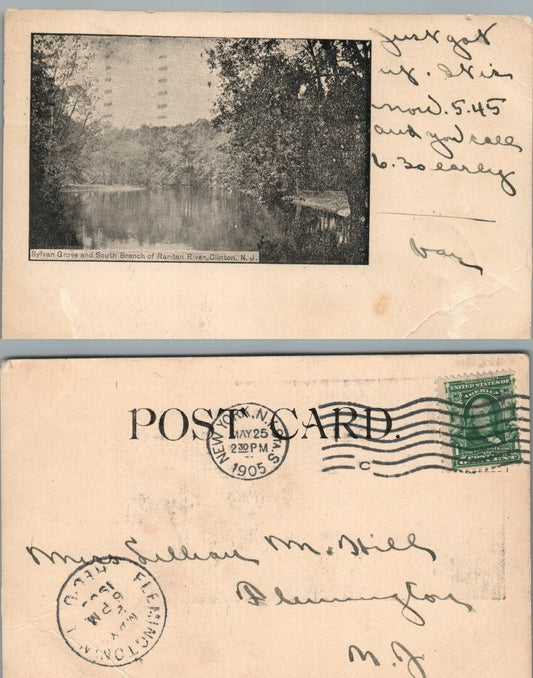 Just got
up. It is
now. 5.45
and you call
6.30 early
Sylvan Grove and South Branch of Raritan River, Clinton, N. J.
POST CARD.
NEW YORK, N.Y.
MAY 25
2 30 PM
1905
C
UNITED STATES OF
AMERICA
Miss Lillian M. Hill
Flemington
N. J.
FLEMINGTON, N. J.
REC'D.
MAY
PM